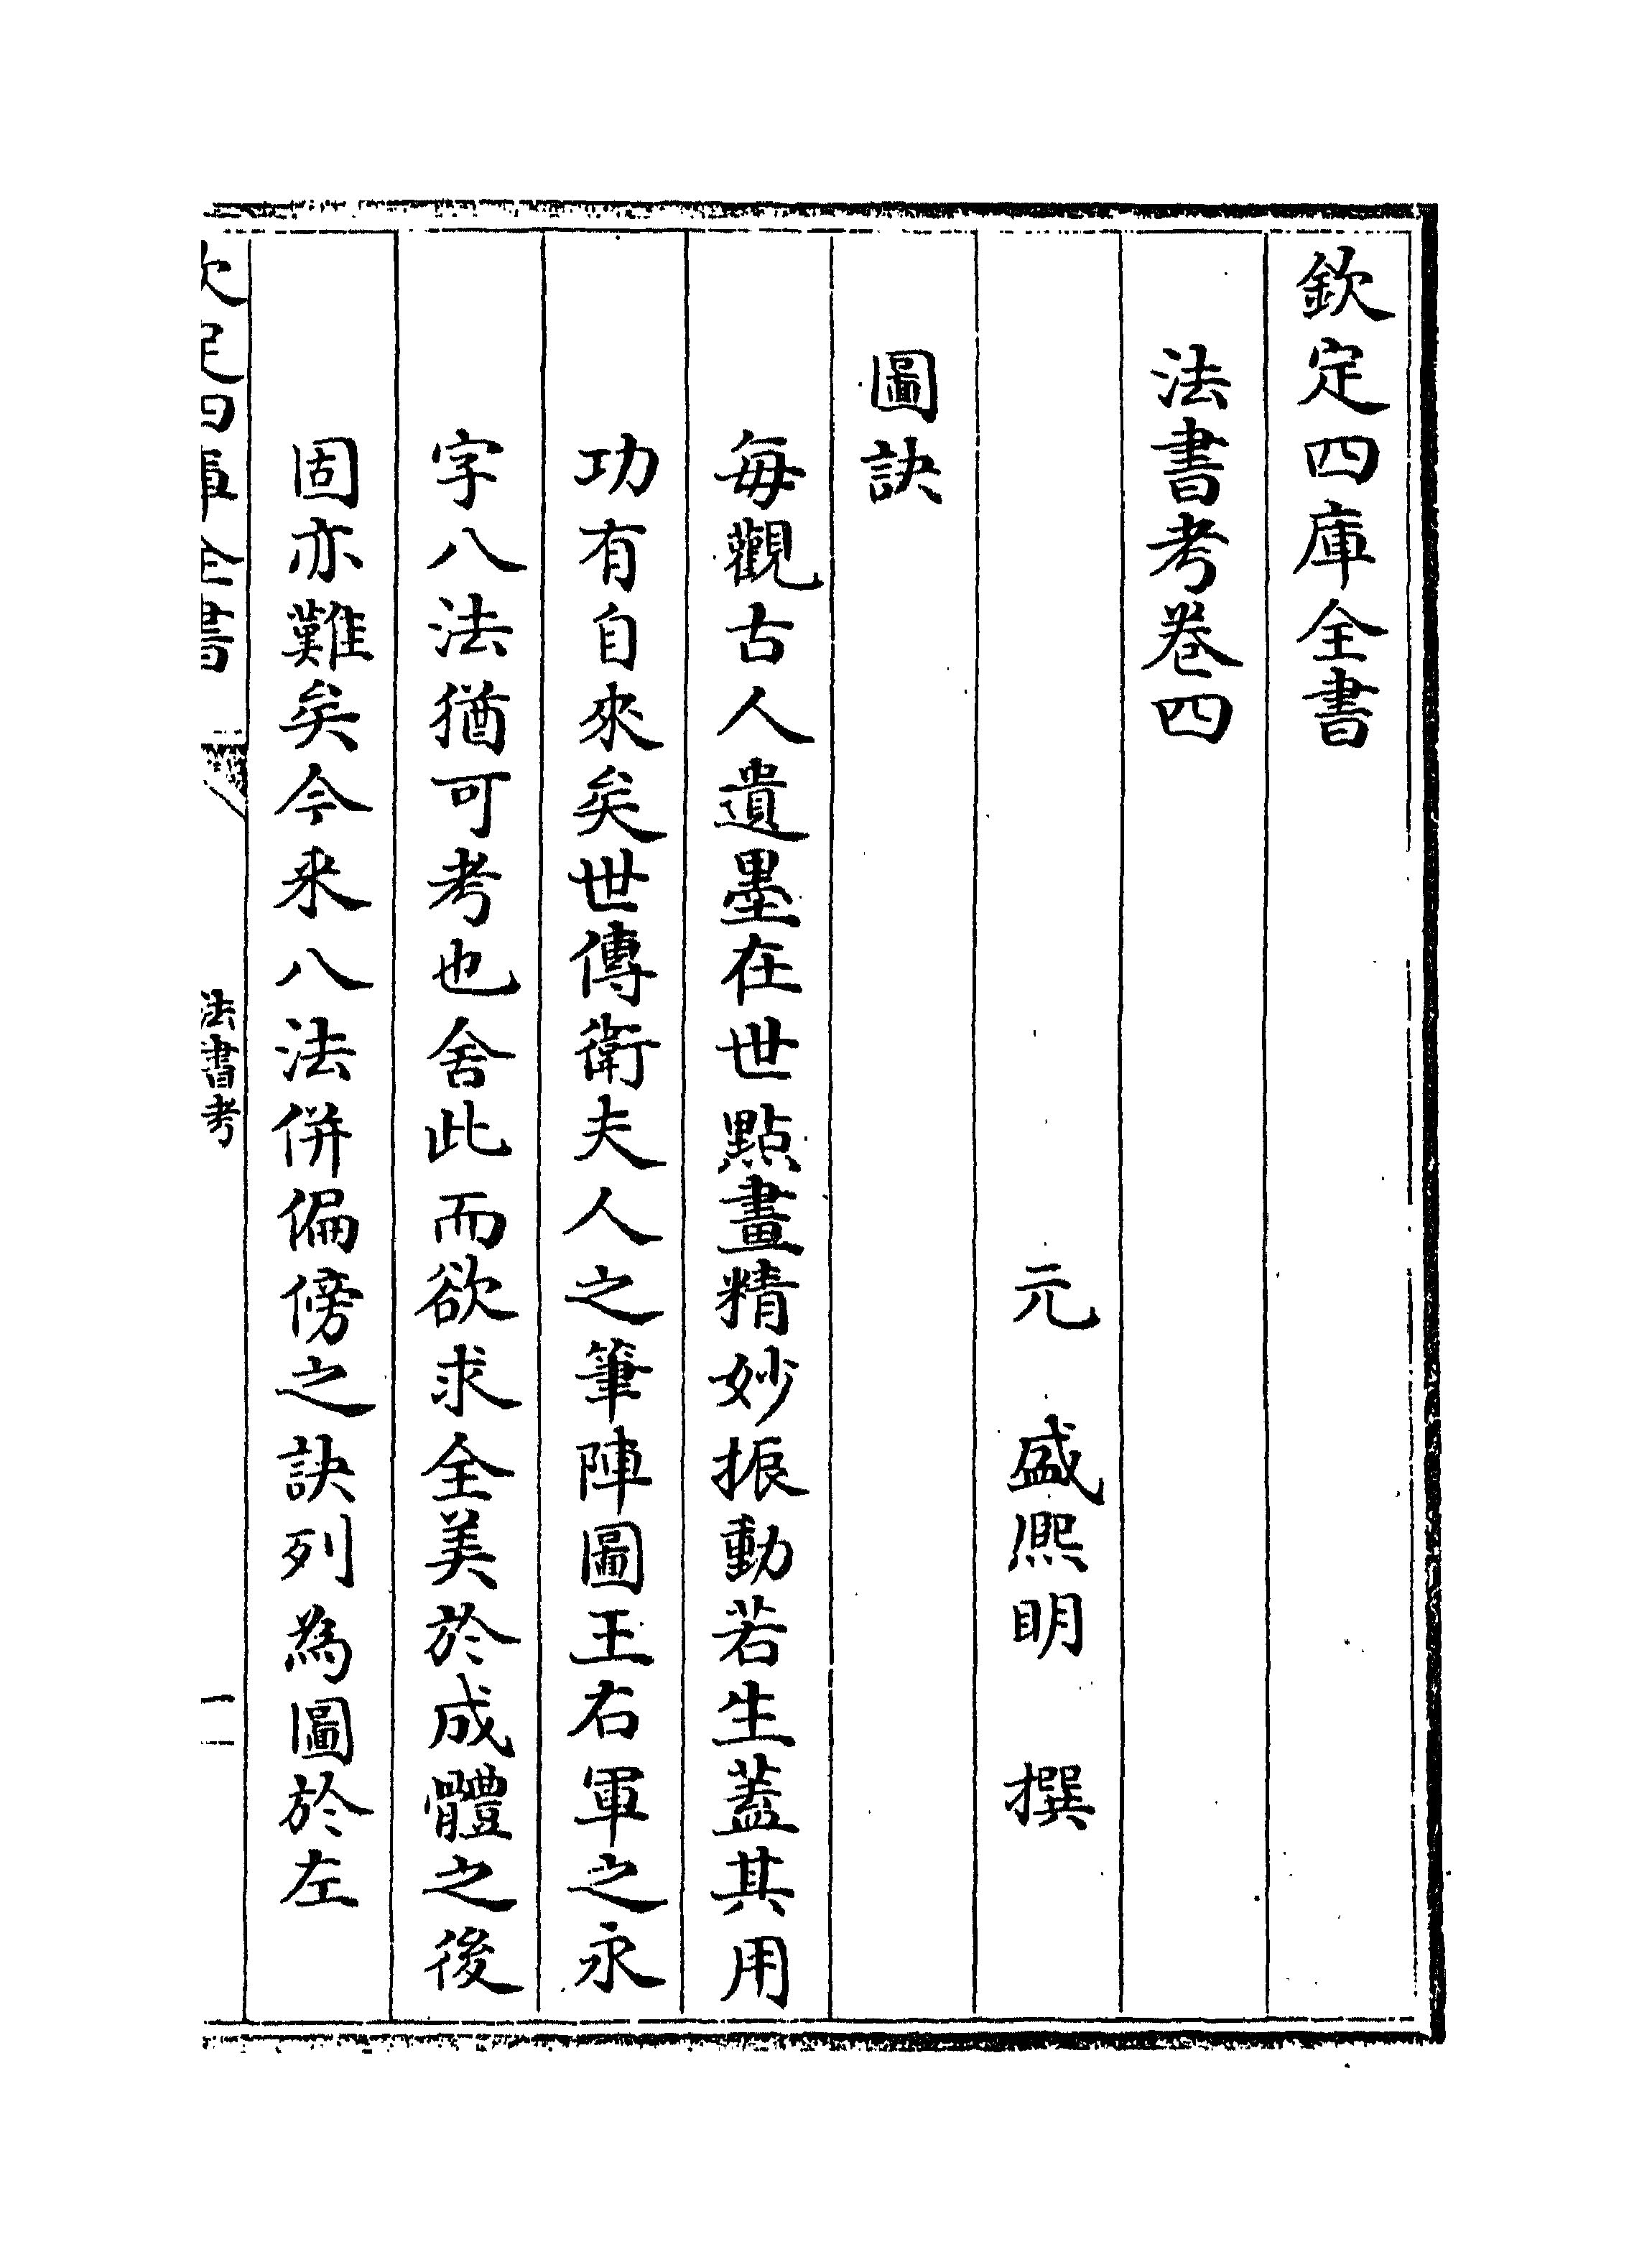 欽定四庫全書
法書考卷四
元 盛熙明 撰
圖訣
每觀古人遺墨在世點畫精妙振動若生蓋其用
功有自來矣世傳衛夫人之筆陣圖王右軍之永
字八法猶可考也舍此而欲求全美於成體之後
固亦難矣今来八法併偏傍之訣列為圖於左
欽定四庫全書
法書考
一